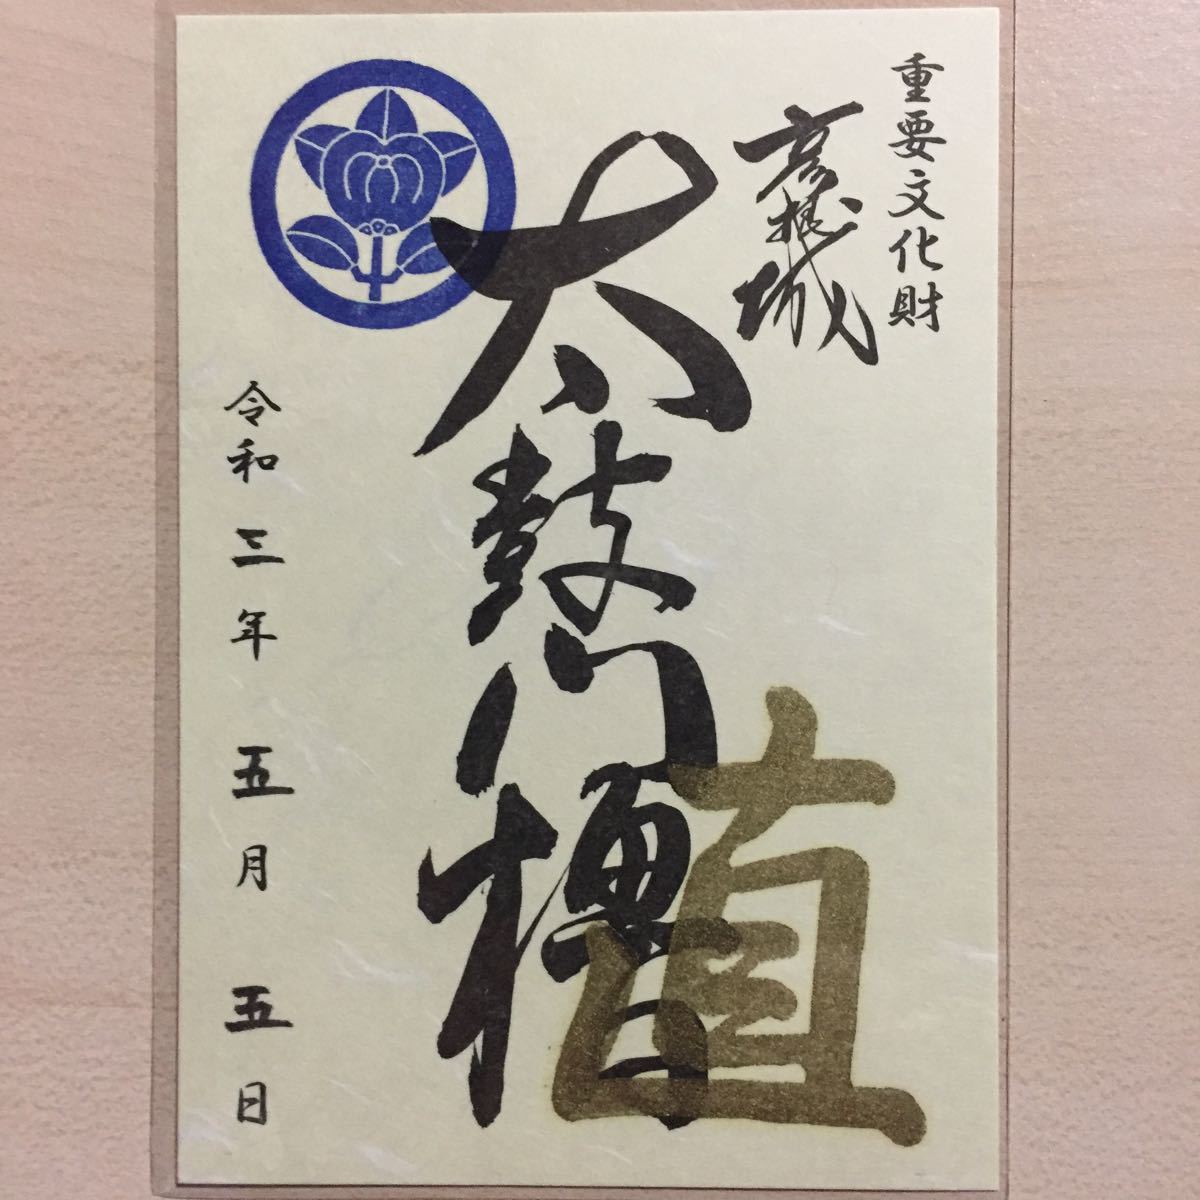 重要文化財
彦根城
太鼓門櫓
直
令和三年五月五日